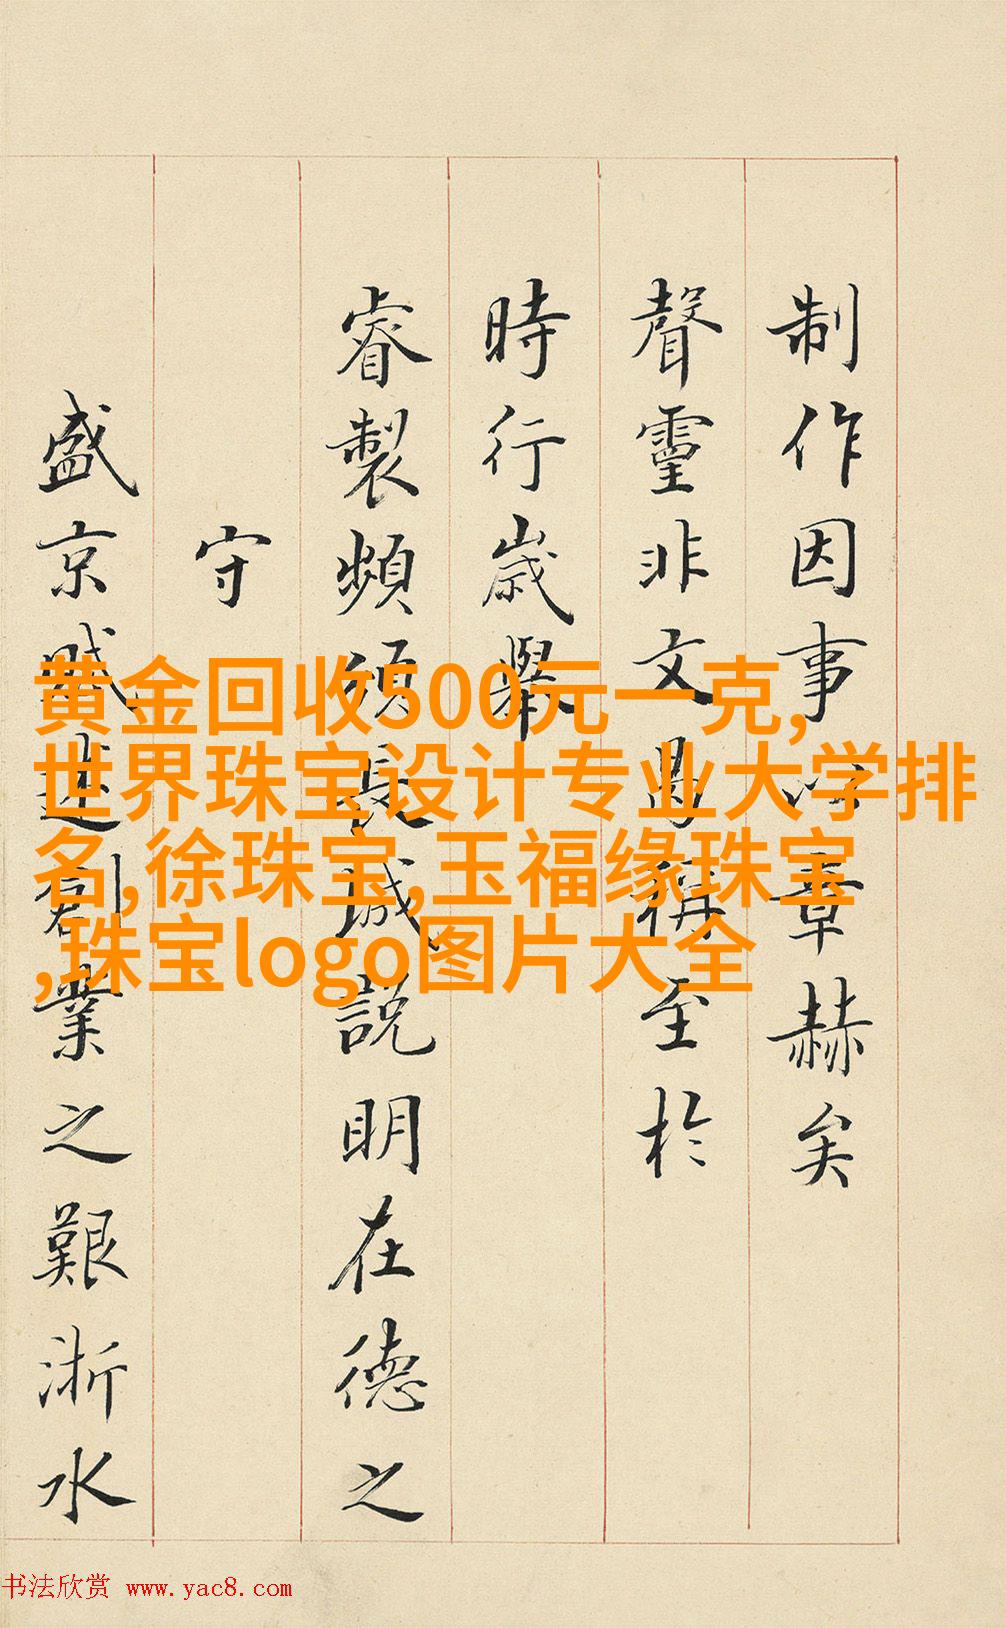 制作因事章赫矣
聲靈非文曷稱至於
時行歲舉
睿製頻頒長城說明在德之
守
盛京賦述創業之艱浙水
黄金回收500元一克,
世界珠宝设计专业大学排
名,徐珠宝,玉福缘珠宝
,珠宝logo图片大全
书法欣赏 www.yac8.com